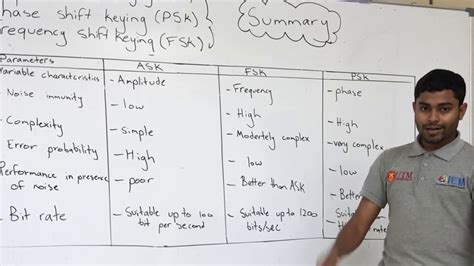 hase shift keying (PSK)
requency shift keying (FSK)
Summary
Parameters
ASK
FSK
PSK
Variable characteristics
- Amplitude
- Frequency
- phase
- Noise immunity
- low
- High
- High
- Complexity
- Simple
- Modertely complex
- very complex
Error probability
- High
- low
- low
Performance in presence of noise
- poor
- Better than ASK
- Bette
- Bit rate
- Suitable up to 100 bit per second
- Suitable up to 1200 bits/sec
- Suita
rate
UTM